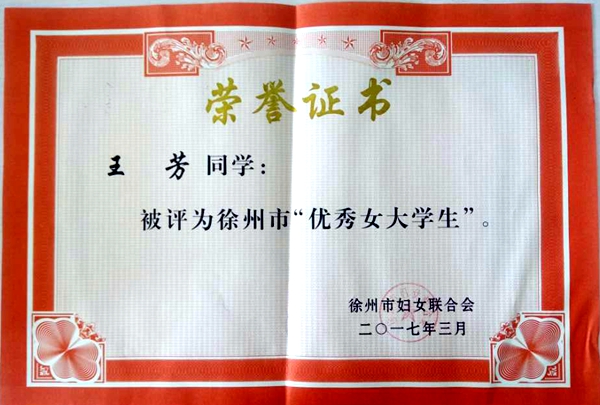 荣誉证书
王 芳 同学：
被评为徐州市“优秀女大学生”。
徐州市妇女联合会
二〇一七年三月